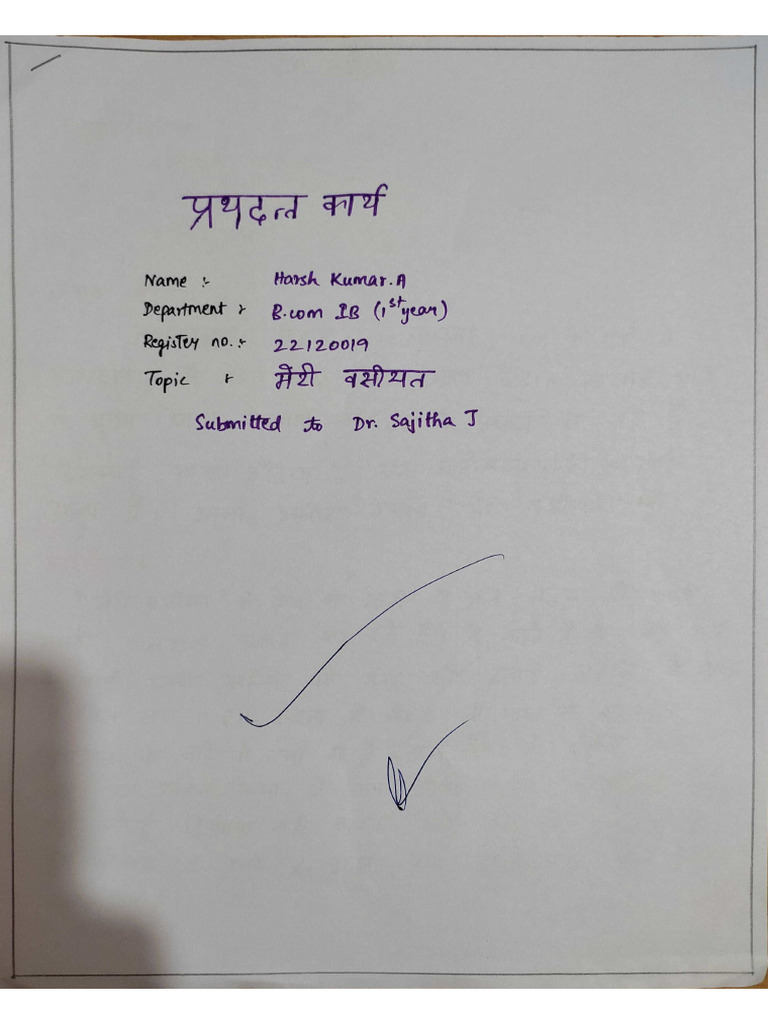 प्रथदन्त कार्य
Name :- Harsh Kumar.A
Department :- B.com IB (1st year)
Register no. :- 22120019
Topic :- मेरी वसीयत
Submitted to Dr. Sajitha J